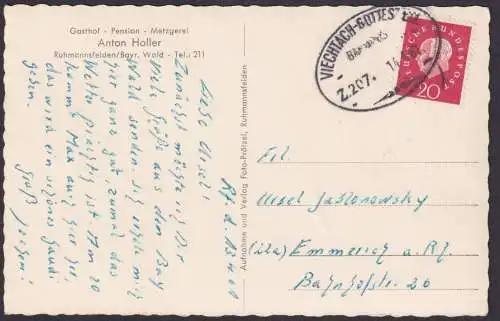 Gasthof - Pension - Metzgerei
Anton Holler
Ruhmannsfelden/Bayr. Wald - Tel.: 211
Rf. d. 13.4.60
Liebe Ursel!
Zunächst möchte ich Dir
viele Grüße aus dem Bay.
Wald senden. Ich erhole mich
hier ganz gut, zumal das
Wetter prächtig ist. Um 20
kommt Max auch hier her,
das wird ein schönes Gaudi
geben.
Gruß Jochen!
Aufnahme und Verlag Foto-Prötzel, Ruhmannsfelden
VIECHTACH-GOTTESZELL
Bahnpost
Z.207.
DEUTSCHE BUNDESPOST
20
Frl.
Ursel Jablonowsky
(22a) Emmerich a. Rh.
Bahnhofstr. 26